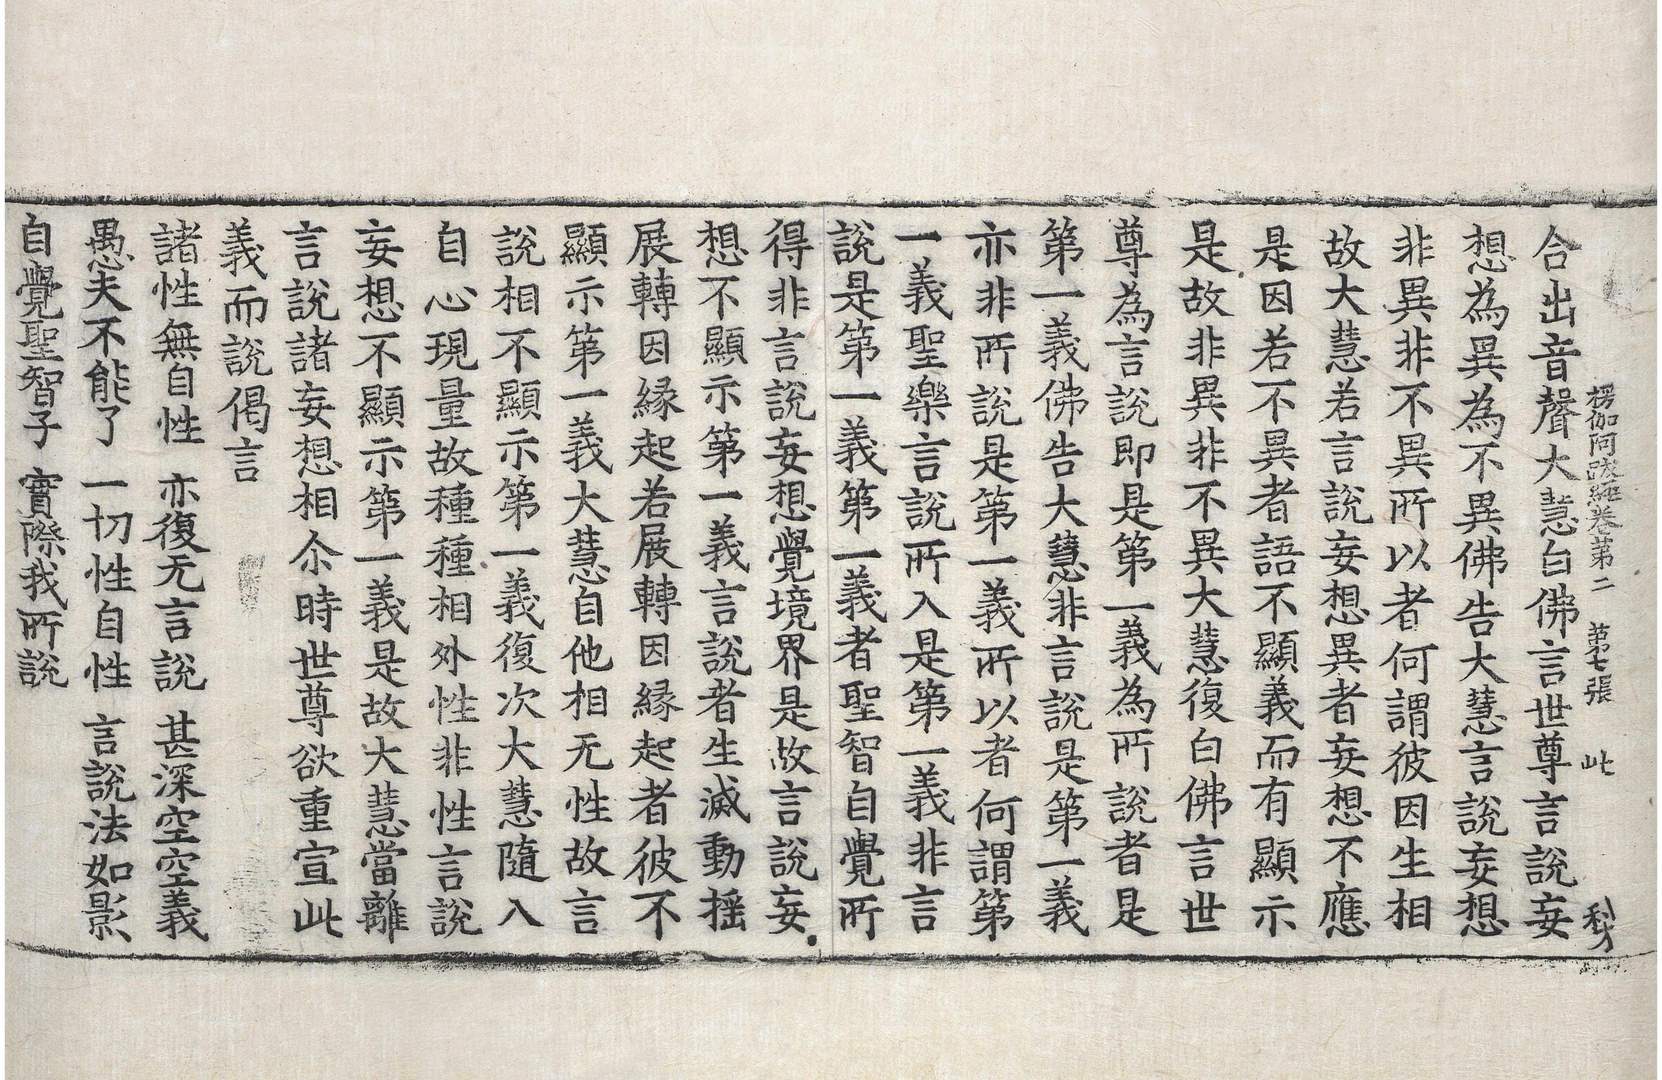 楞伽阿跋經卷第二　第七張　此
合出音聲大慧白佛言世尊言說妄
想為異為不異佛告大慧言說妄想
非異非不異所以者何謂彼因生相
故大慧若言說妄想異者妄想不應
是因若不異者語不顯義而有顯示
是故非異非不異大慧復白佛言世
尊為言說即是第一義為所說者是
第一義佛告大慧非言說是第一義
亦非所說是第一義所以者何謂第
一義聖樂言說所入是第一義非言
說是第一義第一義者聖智自覺所
得非言說妄想覺境界是故言說妄
想不顯示第一義言說者生滅動搖
展轉因緣起若展轉因緣起者彼不
顯示第一義大慧自他相无性故言
說相不顯示第一義復次大慧隨入
自心現量故種種相外性非性言說
妄想不顯示第一義是故大慧當離
言說諸妄想相尒時世尊欲重宣此
義而說偈言
諸性無自性　亦復无言說　甚深空空義
愚夫不能了　一切性自性　言說法如影
自覺聖智子　實際我所說